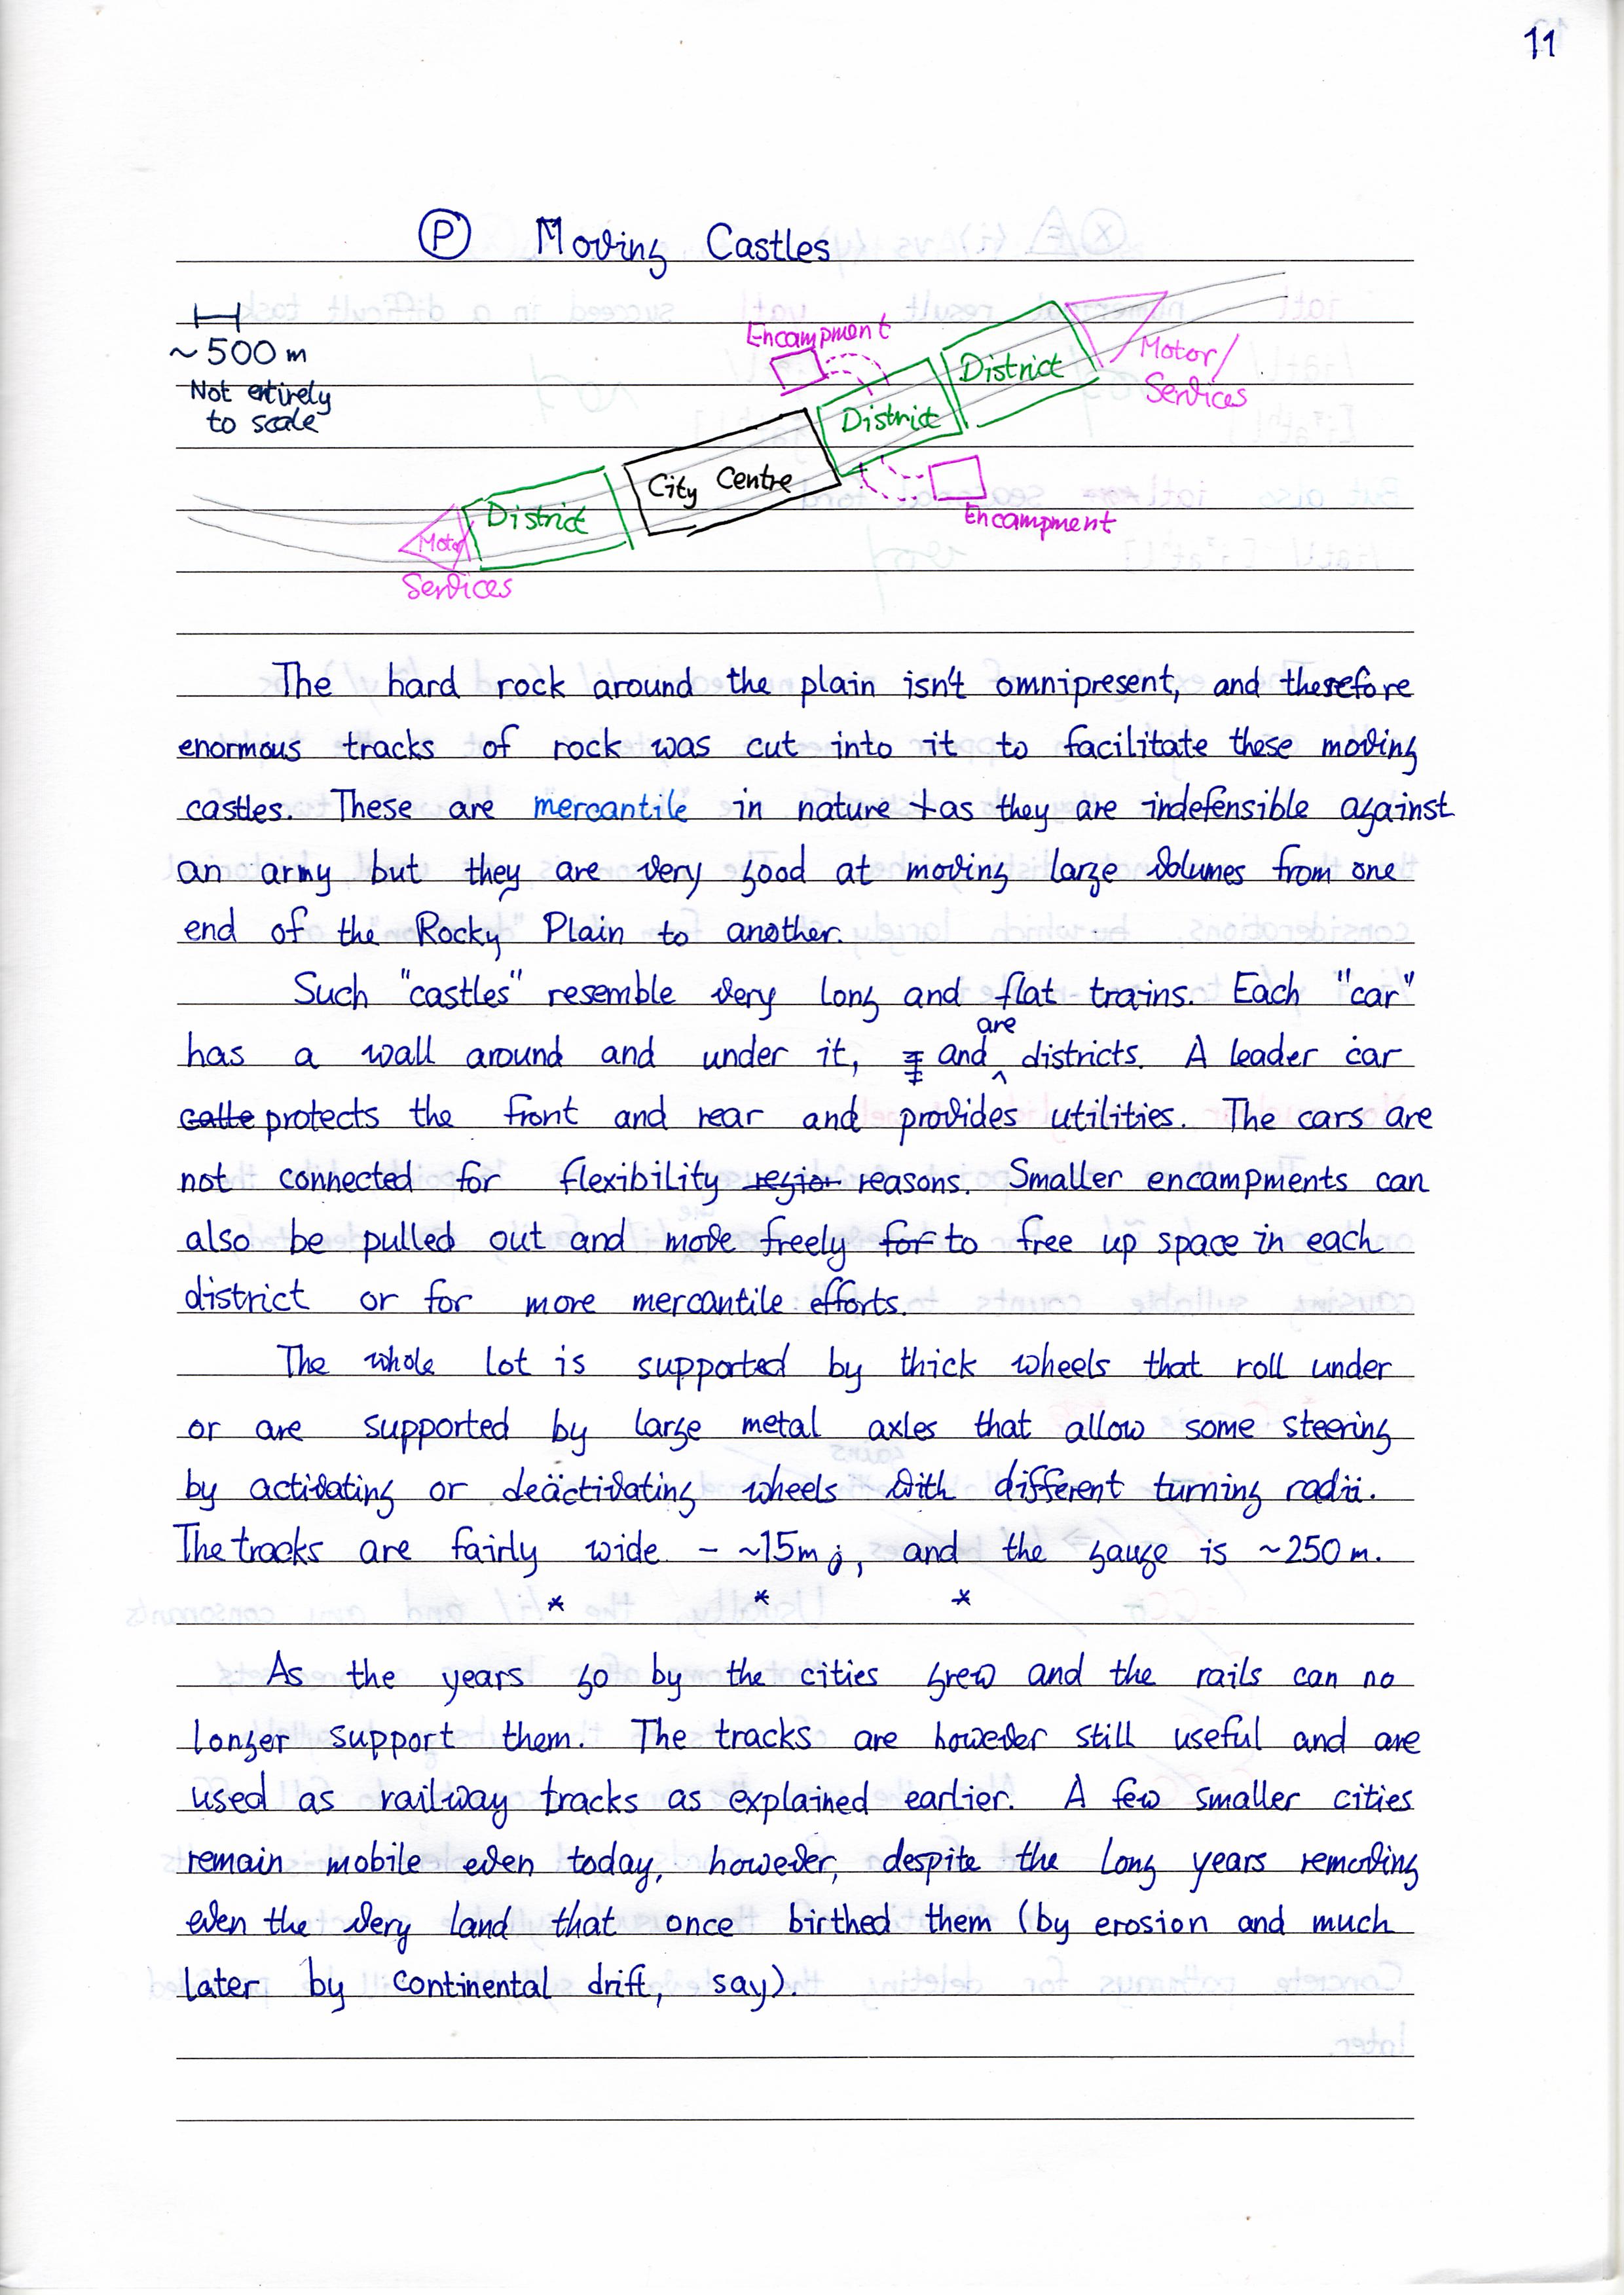 11
Ⓟ Moving Castles
~500 m
Not entirely
to scale
Encampment
District
Motor/
Services
District
City Centre
Encampment
District
Motor
Services
The hard rock around the plain isn't omnipresent, and therefore
enormous tracks of rock was cut into it to facilitate these moving
castles. These are mercantile in nature as they are indefensible against
an army but they are very good at moving large volumes from one
end of the Rocky Plain to another.
Such "castles" resemble very long and flat trains. Each "car"
has a wall around and under it, and are districts. A leader car
protects the front and rear and provides utilities. The cars are
not connected for flexibility reasons. Smaller encampments can
also be pulled out and move freely for to free up space in each
district or for more mercantile efforts.
The whole lot is supported by thick wheels that roll under
or are supported by large metal axles that allow some steering
by activating or deäctivating wheels with different turning radii.
The tracks are fairly wide - ~15m, and the gauge is ~250 m.
* * *
As the years go by the cities grew and the rails can no
longer support them. The tracks are however still useful and are
used as railway tracks as explained earlier. A few smaller cities
remain mobile even today, however, despite the long years removing
even the very land that once birthed them (by erosion and much
later by continental drift, say).